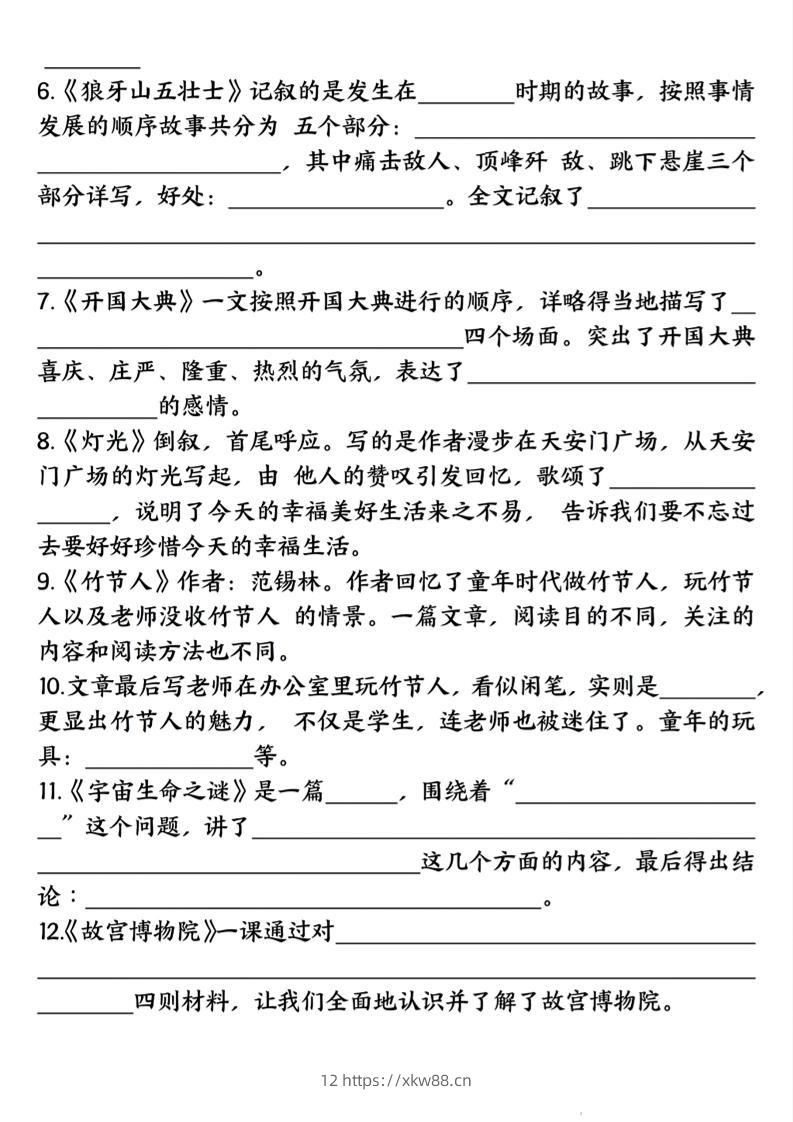 ________
6.《狼牙山五壮士》记叙的是发生在________时期的故事，按照事情
发展的顺序故事共分为 五个部分：____________________________
____________________，其中痛击敌人、顶峰歼 敌、跳下悬崖三个
部分详写，好处：__________________。全文记叙了______________
____________________________________________________________
__________________。
7.《开国大典》一文按照开国大典进行的顺序，详略得当地描写了__
____________________________________四个场面。突出了开国大典
喜庆、庄严、隆重、热烈的气氛，表达了________________________
__________的感情。
8.《灯光》倒叙，首尾呼应。写的是作者漫步在天安门广场，从天安
门广场的灯光写起，由 他人的赞叹引发回忆，歌颂了____________
______，说明了今天的幸福美好生活来之不易， 告诉我们要不忘过
去要好好珍惜今天的幸福生活。
9.《竹节人》作者：范锡林。作者回忆了童年时代做竹节人，玩竹节
人以及老师没收竹节人 的情景。一篇文章，阅读目的不同，关注的
内容和阅读方法也不同。
10.文章最后写老师在办公室里玩竹节人，看似闲笔，实则是________，
更显出竹节人的魅力， 不仅是学生，连老师也被迷住了。童年的玩
具：______________等。
11.《宇宙生命之谜》是一篇______，围绕着“____________________
__”这个问题，讲了__________________________________________
________________________________这几个方面的内容，最后得出结
论：______________________________________。
12.《故宫博物院》一课通过对___________________________________
____________________________________________________________
________四则材料，让我们全面地认识并了解了故宫博物院。
12 https://xkw88.cn